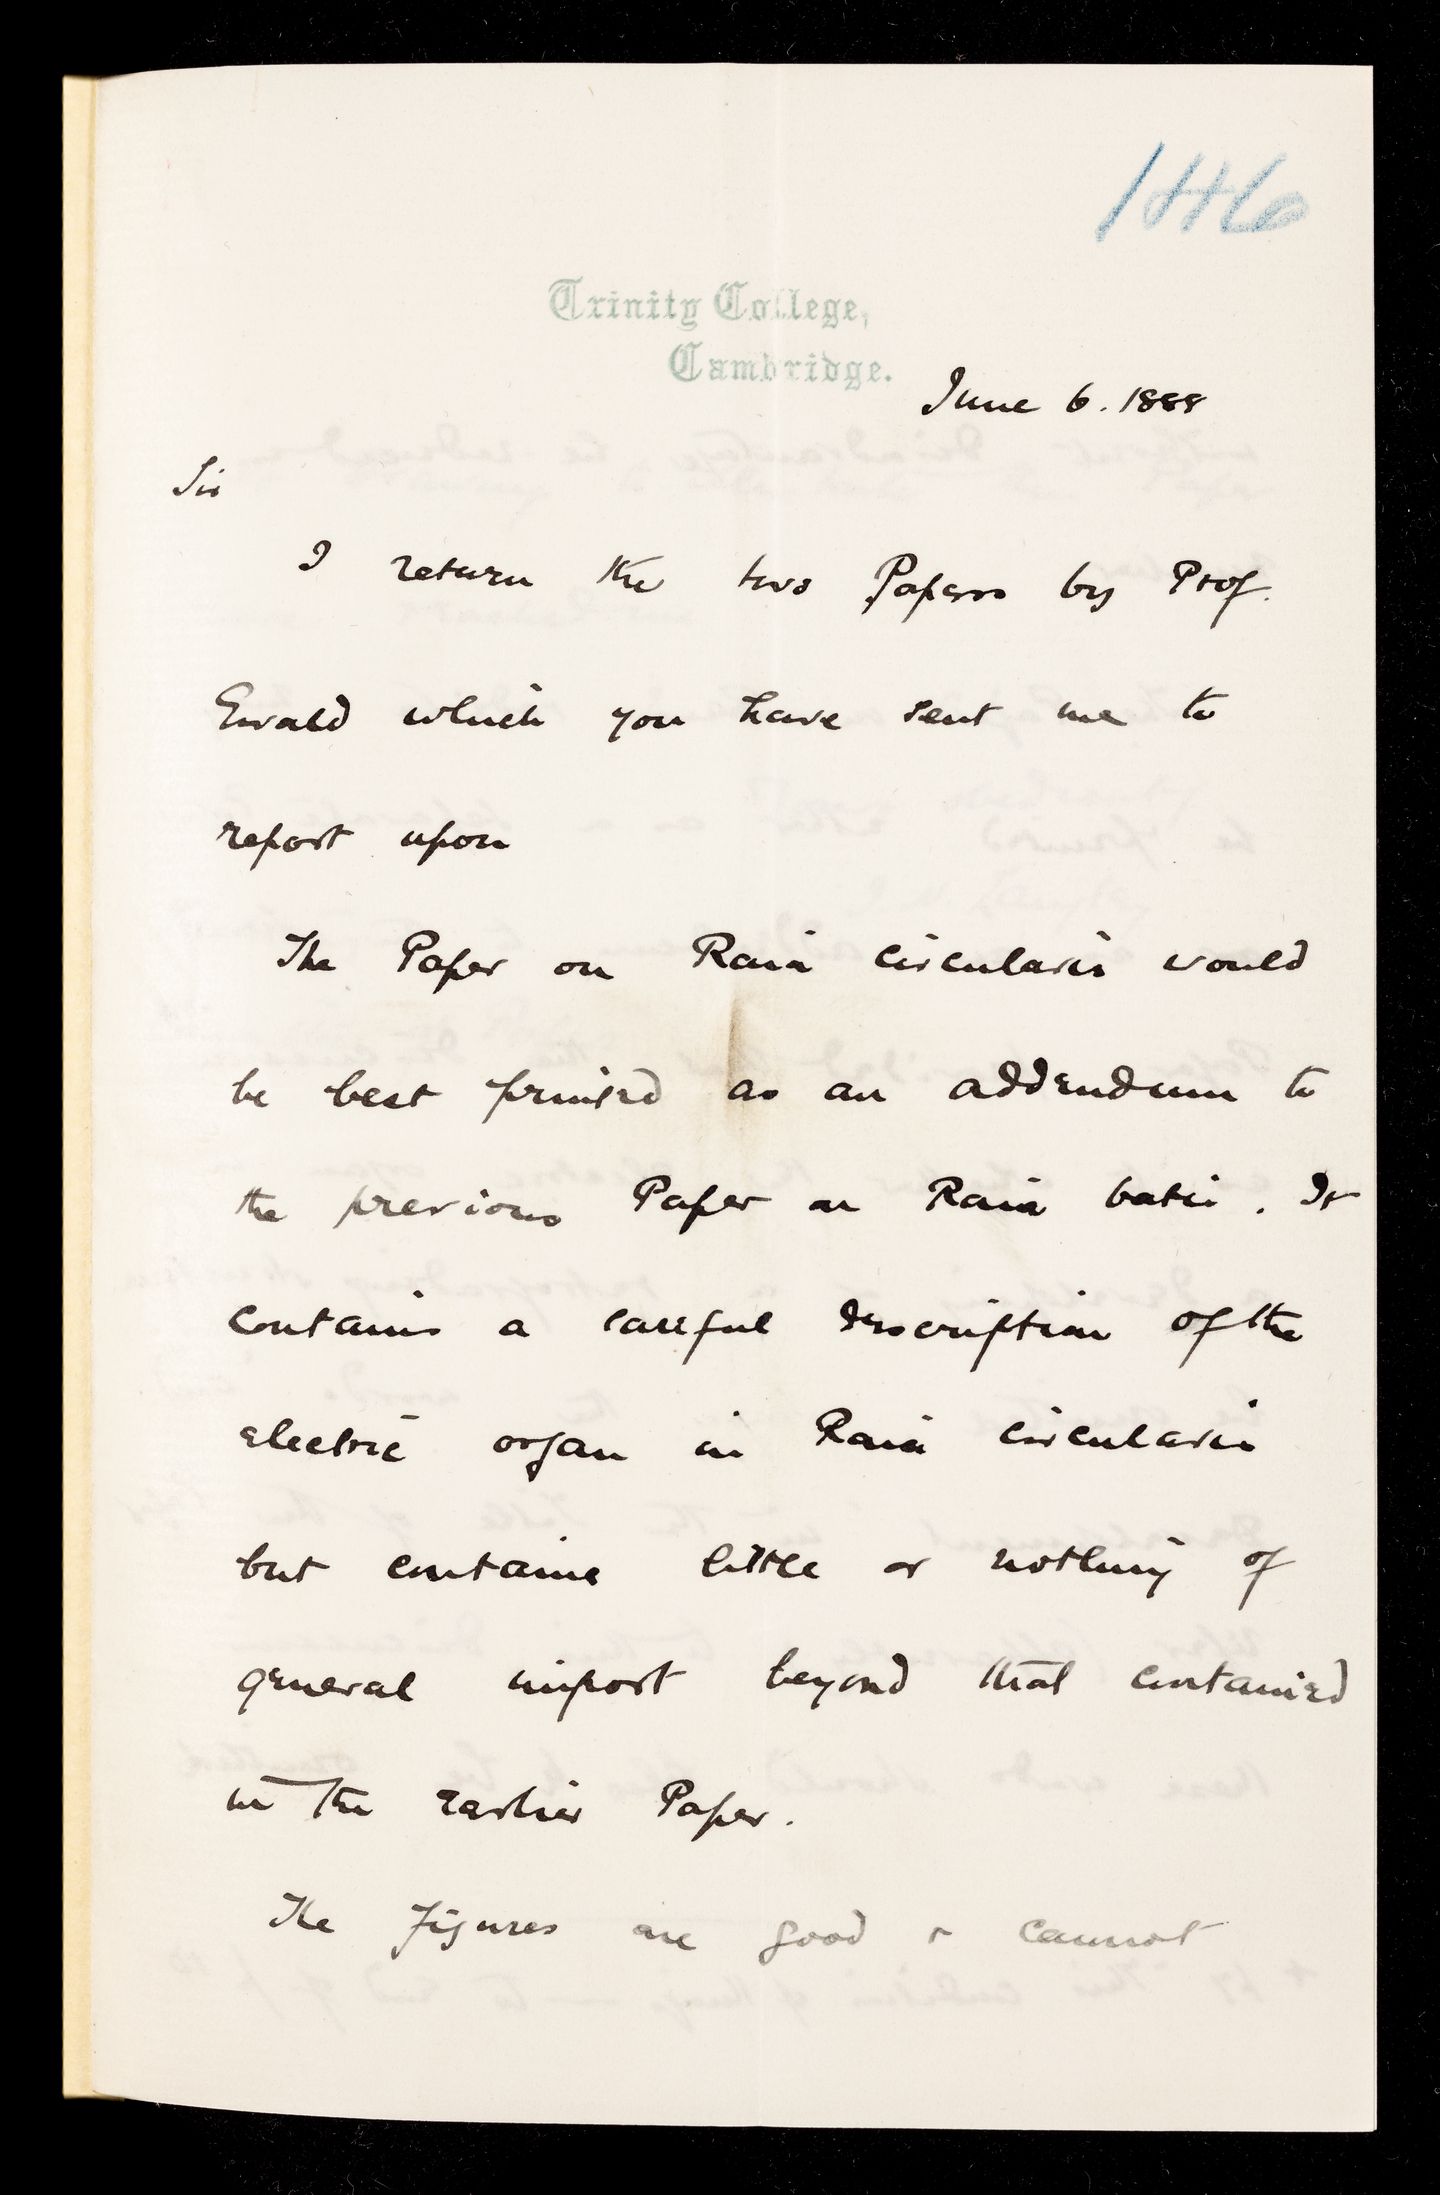 146
Trinity College,
Cambridge.
June 6. 1888
Sir
I return the two Papers by Prof.
Ewald which you have sent me to
report upon
The Paper on Raia circularis would
be best printed as an addendum to
the previous Paper on Raia batis. It
contains a careful description of the
electric organ in Raia circularis
but contains little or nothing of
general import beyond that contained
in the earlier Paper.
The figures are good & cannot